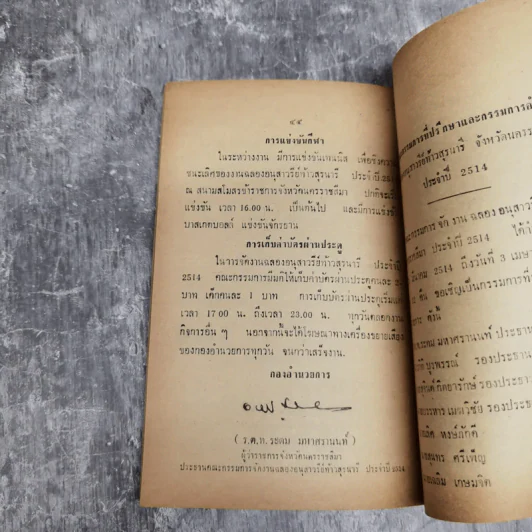 ๔๕
การแข่งขันกีฬา
ในระหว่างงาน มีการแข่งขันเทนนิส เพื่อชิงความ
ชนะเลิศของงานฉลองอนุสาวรีย์ท้าวสุรนารี ประจำปี
ณ สนามสโมสรข้าราชการจังหวัดนครราชสีมา ปกติจะเริ่ม
แข่งขัน เวลา 16.00 น. เป็นต้นไป และมีการแข่งขัน
บาสเกตบอลล์ แข่งขันจักรยาน
การเก็บค่าบัตรผ่านประตู
ในการจัดงานฉลองอนุสาวรีย์ท้าวสุรนารี ประจำปี
2514 คณะกรรมการมีมติให้เก็บค่าบัตรผ่านประตูคนละ
บาท เด็กคนละ 1 บาท การเก็บบัตรผ่านประตูเริ่มแต่
เวลา 17.00 น. ถึงเวลา 23.00 น. ทุกวันตลอดงาน
กิจการอื่น ๆ นอกจากนี้จะได้โฆษณาทางเครื่องขยายเสียง
ของกองอำนวยการทุกวัน จนกว่าเสร็จงาน.
กองอำนวยการ
( ร.ต.ท. ระดม มหาศรานนท์ )
ผู้ว่าราชการจังหวัดนครราชสีมา
ประธานคณะกรรมการจัดงานฉลองอนุสาวรีย์ท้าวสุรนารี ประจำปี 2514
กรรมการที่ปรึกษาและกรรมการ
ท้าวสุรนารี จังหวัดนคร
ประจำปี 2514
กรรมการ จัด งาน ฉลอง อนุสาวรีย์
ประจำปี 2514 ได้
มีนาคม 2514 ถึงวันที่ 3 เมษา
คืน ขอเชิญเป็นกรรมการที่
ดังนี้
ระดม มหาศรานนท์ ประธาน
บุรพรรณ์ รองประธาน
กิตยารักษ์ รองประธาน
เมตวิชัย รองประธาน
หงษ์ภักดี
สุนทร ศรีเพ็ญ
เฉลิม เกษมจิต